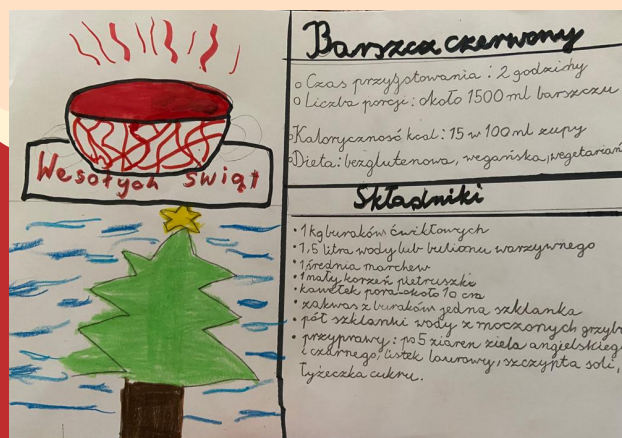 Wesołych świąt
Barszcz czerwony
Czas przygotowania: 2 godziny
Liczba porcji: około 1500 ml barszczu
Kaloryczność kcal: 15 w 100 ml zupy
Dieta: bezglutenowa, wegańska, wegetariań
Składniki
1 kg buraków ćwikłowych
1,5 litra wody lub bulionu warzywnego
1 średnia marchew
1 mały korzeń pietruszki
kawałek pora-około 10 cm
zakwas z buraków jedna szklanka
pół szklanki wody z moczonych grzyb
przyprawy: po 5 ziaren ziela angielskieg
i czarnego, listek laurowy, szczypta soli,
łyżeczka cukru.